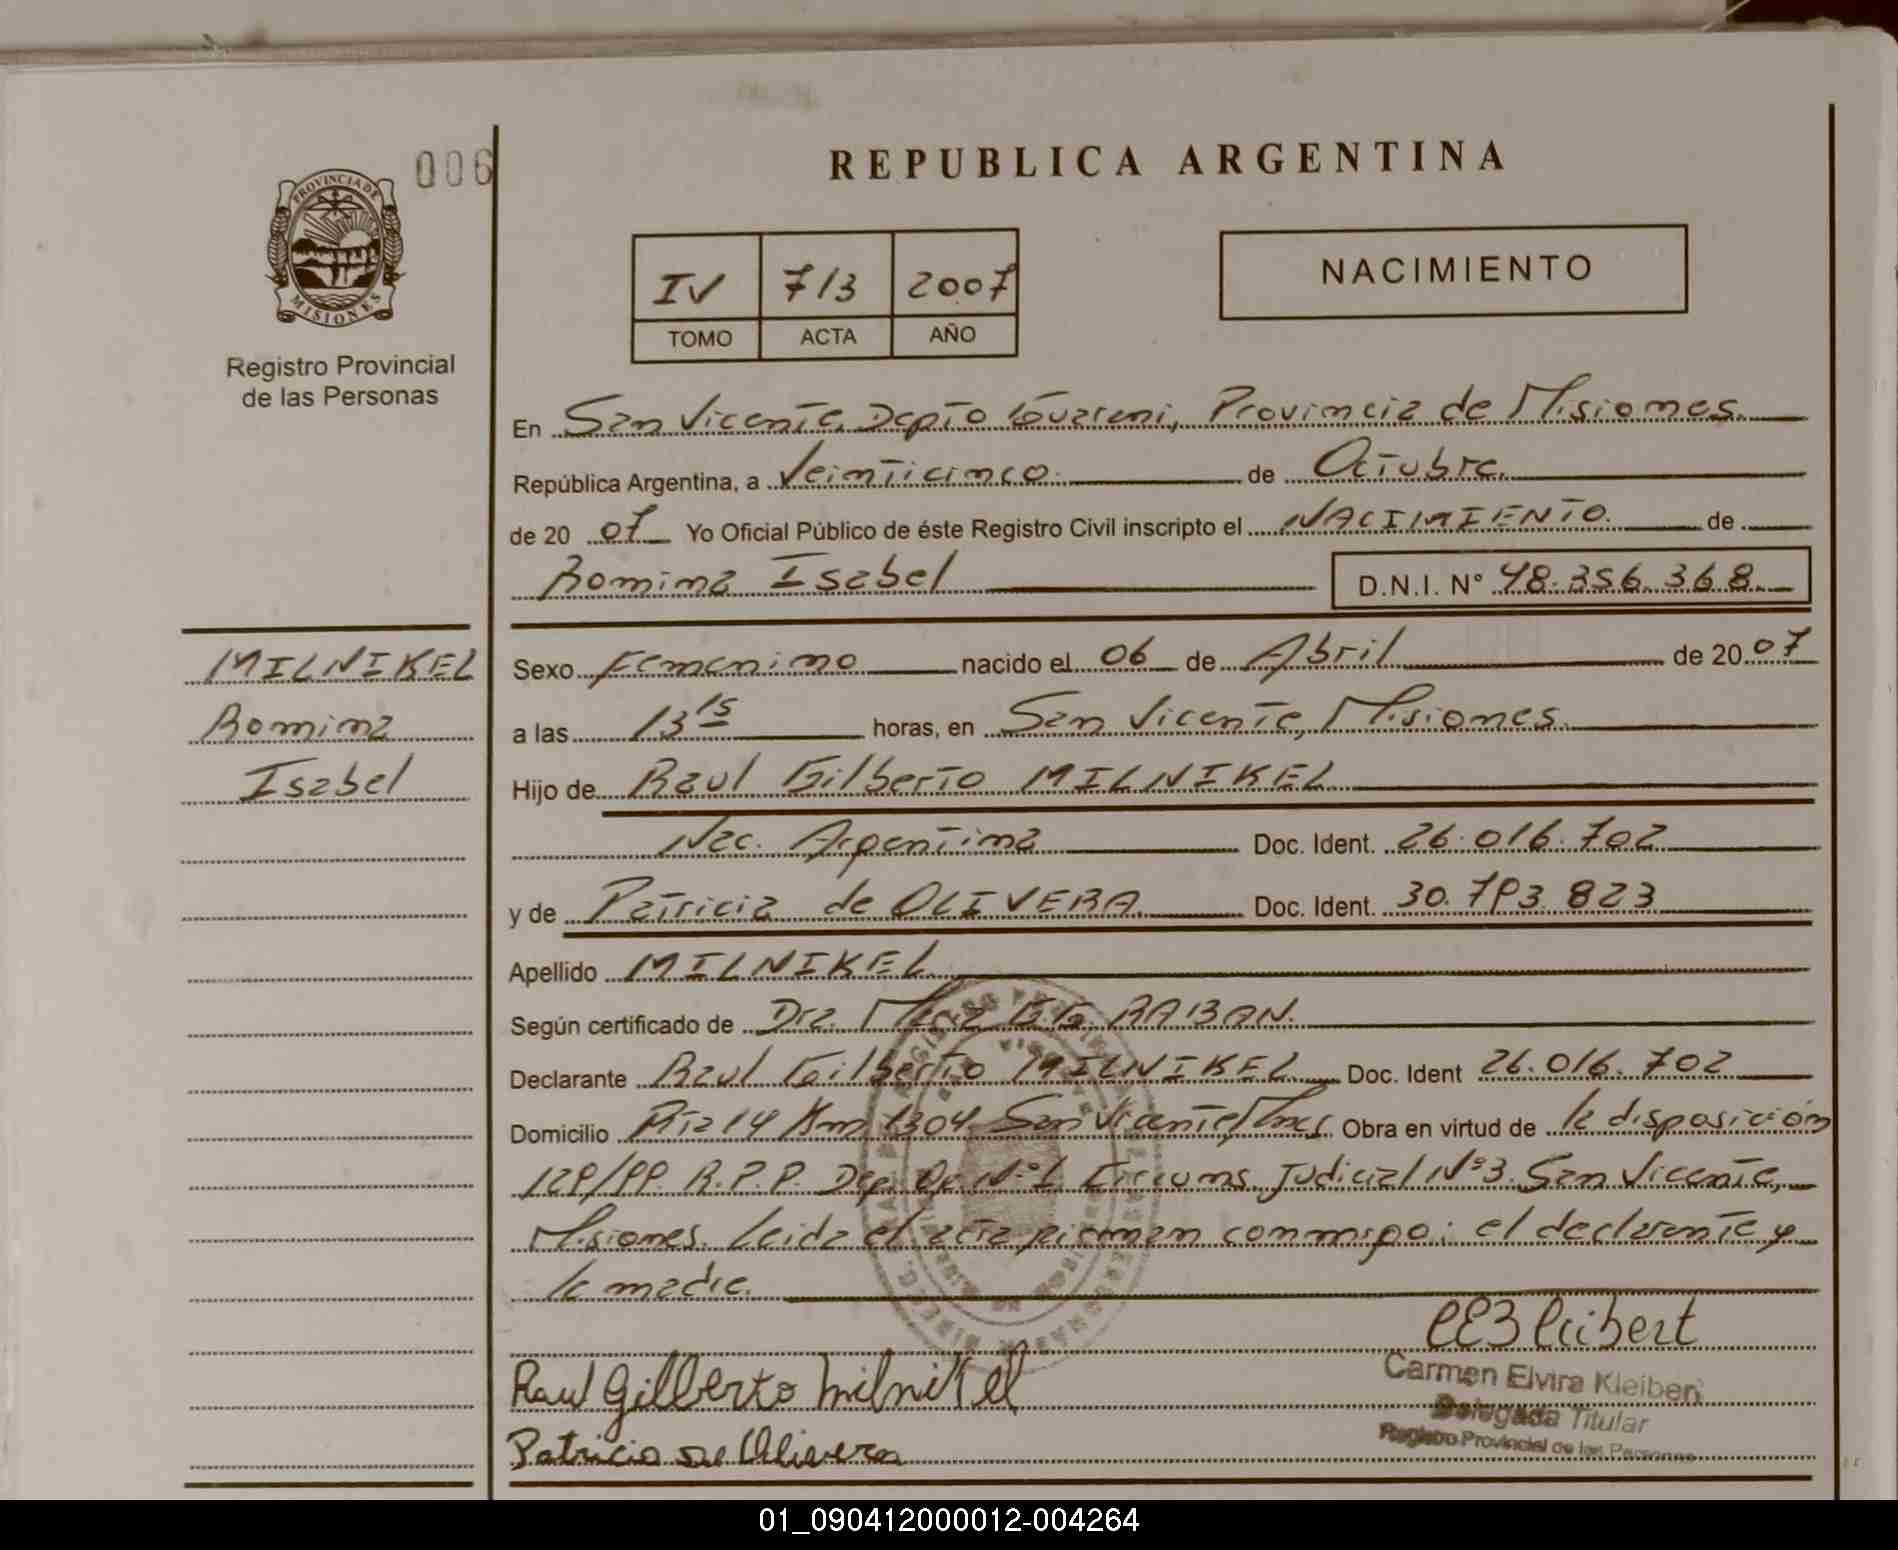 006
PROVINCIA DE
MISIONES
Registro Provincial
de las Personas
REPUBLICA ARGENTINA
IV 713 2007
TOMO ACTA AÑO
NACIMIENTO
En San Vicente, Depto Guarani, Provincia de Misiones.
República Argentina, a Veinticinco. de Octubre.
de 20 07 Yo Oficial Público de éste Registro Civil inscripto el NACIMIENTO. de
Romina Isabel
D.N.I. N° 48.356.368.
MILNIKEL
Romina
Isabel
Sexo Femenino nacido el 06 de Abril de 20 07
a las 13 15 horas, en San Vicente, Misiones.
Hijo de Raul Gilberto MILNIKEL
Nac. Argentina Doc. Ident. 26.016.702
y de Patricia de OLIVERA Doc. Ident. 30.793.823
Apellido MILNIKEL
Según certificado de Dra. G. RABAN.
Declarante Raul Gilberto MILNIKEL Doc. Ident 26.016.702
Domicilio Rta 14 Km 1304 San Vicente, Mnes. Obra en virtud de la disposición
129/99. R.P.P. N°1 Circuns. Judicial N°3. San Vicente,
Misiones. Leida el acta firman conmigo: el declarante y
la madre.
Raul Gilberto Milnikel
Patricia de Olivera
Carmen Elvira Kleibert
Delegada Titular
Registro Provincial de las Personas
01_090412000012-004264